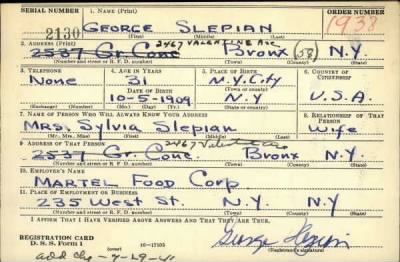 SERIAL NUMBER 1. NAME (Print) ORDER NUMBER
2130 GEORGE SLEPIAN 1938
(First) (Middle) (Last)
2. ADDRESS (Print) 2467 VALENTINE Ave
2537 Gr. Conc Bronx (58) N.Y.
(Number and street or R. F. D. number) (Town) (County) (State)
3. TELEPHONE 4. AGE IN YEARS 5. PLACE OF BIRTH 6. COUNTRY OF CITIZENSHIP
None 31 N.Y. City
DATE OF BIRTH (Town or county)
10-5-1909 N.Y U.S.A.
(Exchange) (Number) (Mo.) (Day) (Yr.) (State or country)
7. NAME OF PERSON WHO WILL ALWAYS KNOW YOUR ADDRESS 8. RELATIONSHIP OF THAT PERSON
Mrs. Sylvia Slepian Wife
(Mr., Mrs., Miss) (First) (Middle) (Last)
9. ADDRESS OF THAT PERSON 2467
2537 Gr. Conc. Bronx N.Y.
(Number and street or R. F. D. number) (Town) (County) (State)
10. EMPLOYER'S NAME
MARTEL FOOD Corp.
11. PLACE OF EMPLOYMENT OR BUSINESS
235 West St. N.Y. N.Y.
(Number and street or R. F. D. number) (Town) (County) (State)
I AFFIRM THAT I HAVE VERIFIED ABOVE ANSWERS AND THAT THEY ARE TRUE.
REGISTRATION CARD
D. S. S. Form 1 (over) 16-17105 George Slepian
(Registrant's signature)